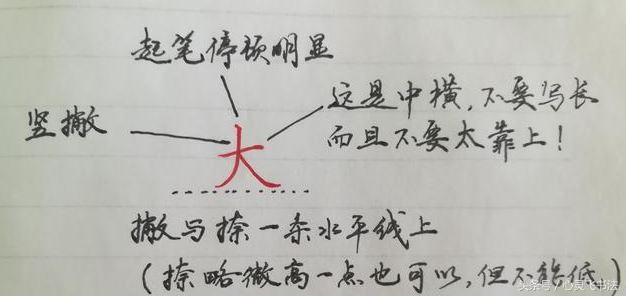 起笔停顿明显
这是中横,不要写长
而且不要太靠上!
竖撇
大
撇与捺一条水平线上
(捺略微高一点也可以,但不能低)
头条号/心灵飞书法